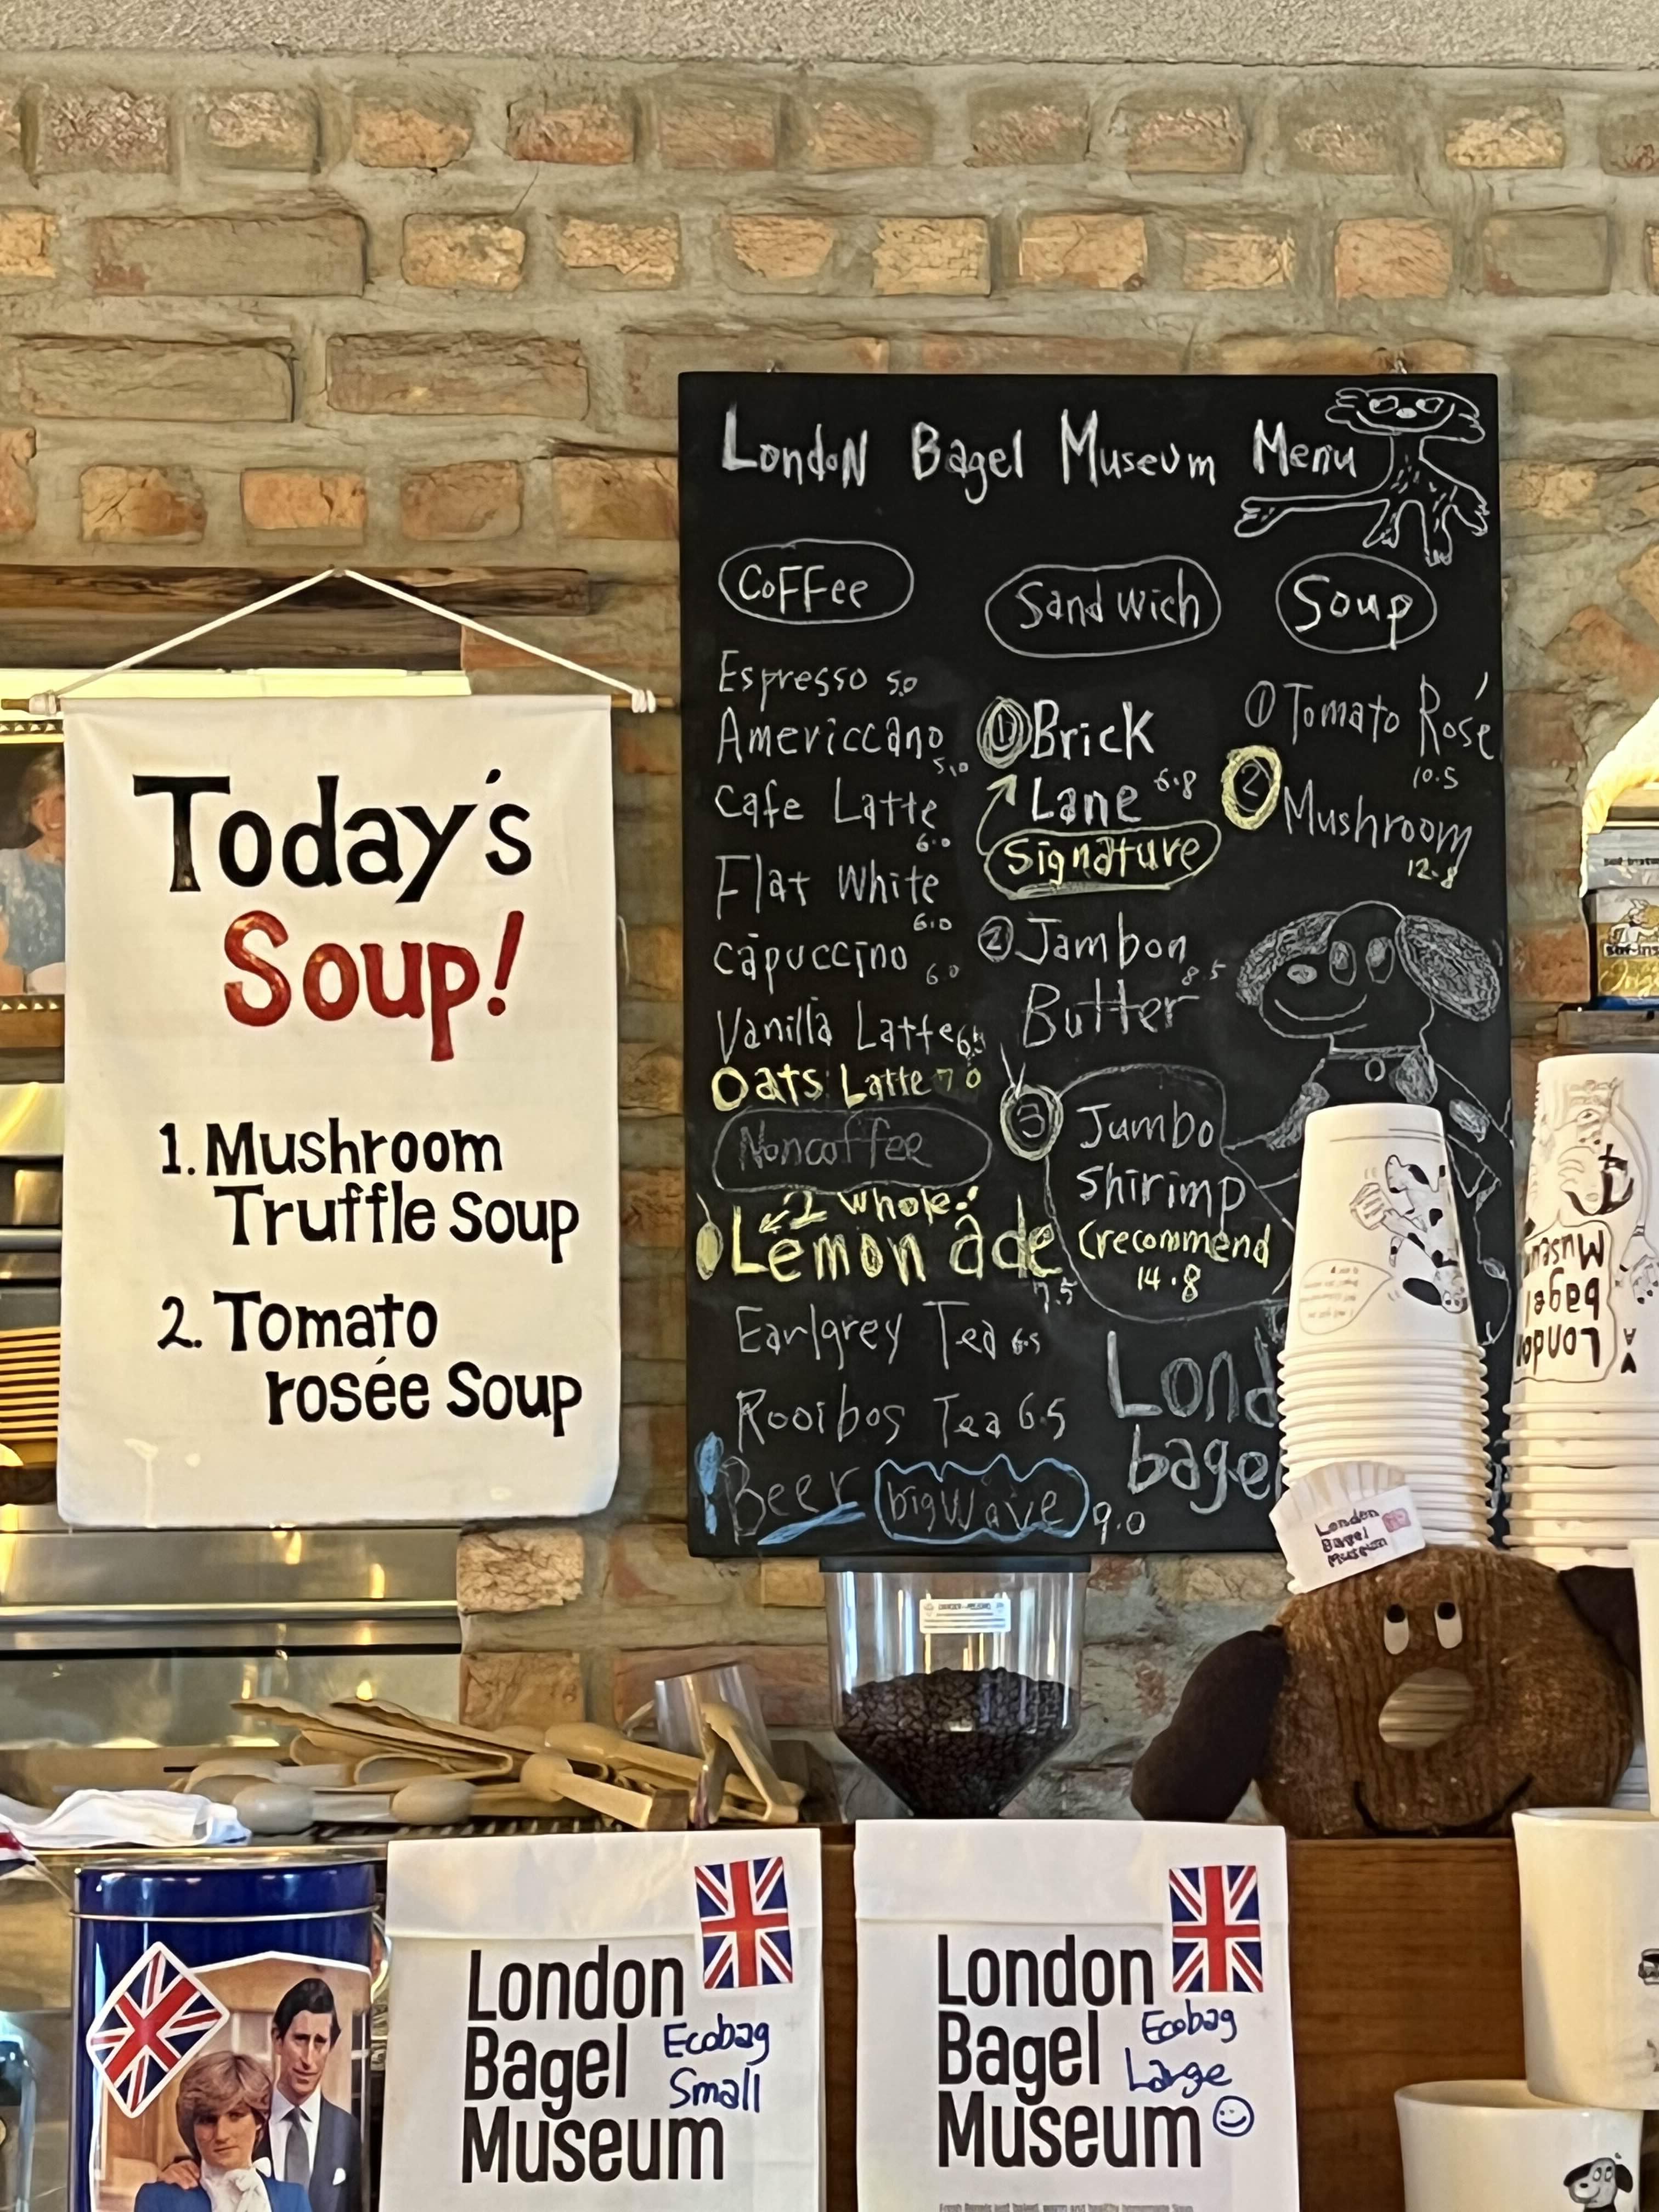 Today's
Soup!
1. Mushroom
Truffle Soup
2. Tomato
rosée Soup
LondoN Bagel Museum Menu
CoFFee
Espresso 5.0
Americcano
5.0
Cafe Latte
6.0
Flat White
6.0
capuccino 6.0
Vanilla Latte 6.5
Oats Latte 7.0
Noncoffee
2 whole!
Lemon ade
7.5
Earlgrey Tea 6.5
Rooibos Tea 6.5
Beer bigwave 9.0
Sandwich
① Brick
Lane 6.8
Signature
② Jambon
8.5
Butter
③ Jumbo
Shirimp
(recommend
14.8
Lond
bage
Soup
① Tomato Rosé
10.5
② Mushroom
12.8
London
bagel
Museum
London
Bagel
Museum
London
Bagel
Museum
Ecobag
Small
London
Bagel
Museum
Ecobag
Large